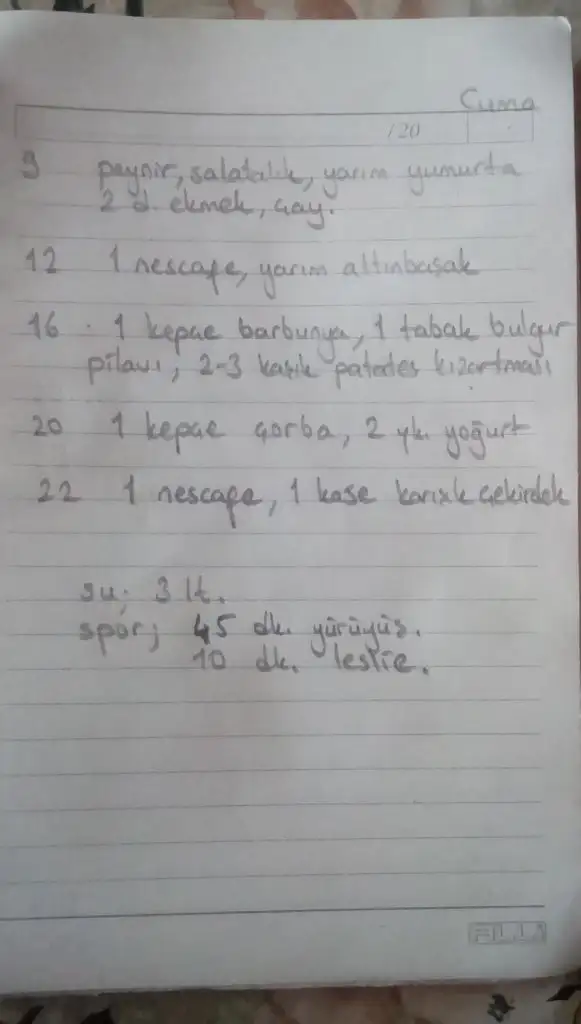 Cuma
/20
9 peynir, salatalık, yarım yumurta
2 d. ekmek, çay.
12 1 nescafe, yarım altınbaşak
16 . 1 kepçe barbunya, 1 tabak bulgur
pilavı, 2-3 kaşık patates kızartması
20 1 kepçe çorba, 2 yk. yoğurt
22 1 nescafe, 1 kase karışık çekirdek
su; 3 lt.
spor; 45 dk. yürüyüş.
10 dk. leslie.